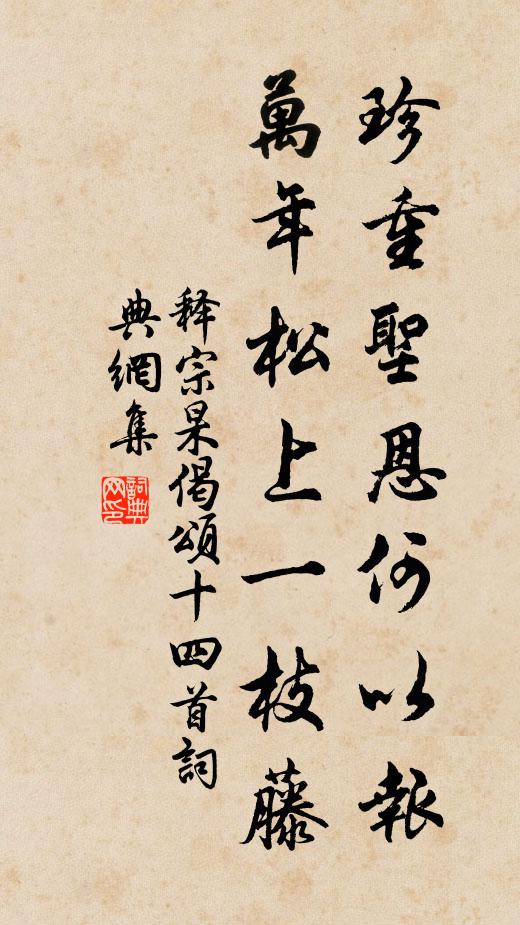 珍重聖恩何以報
萬年松上一枝藤
释宗杲偈頌十四首詞
典網集
詞典
网印